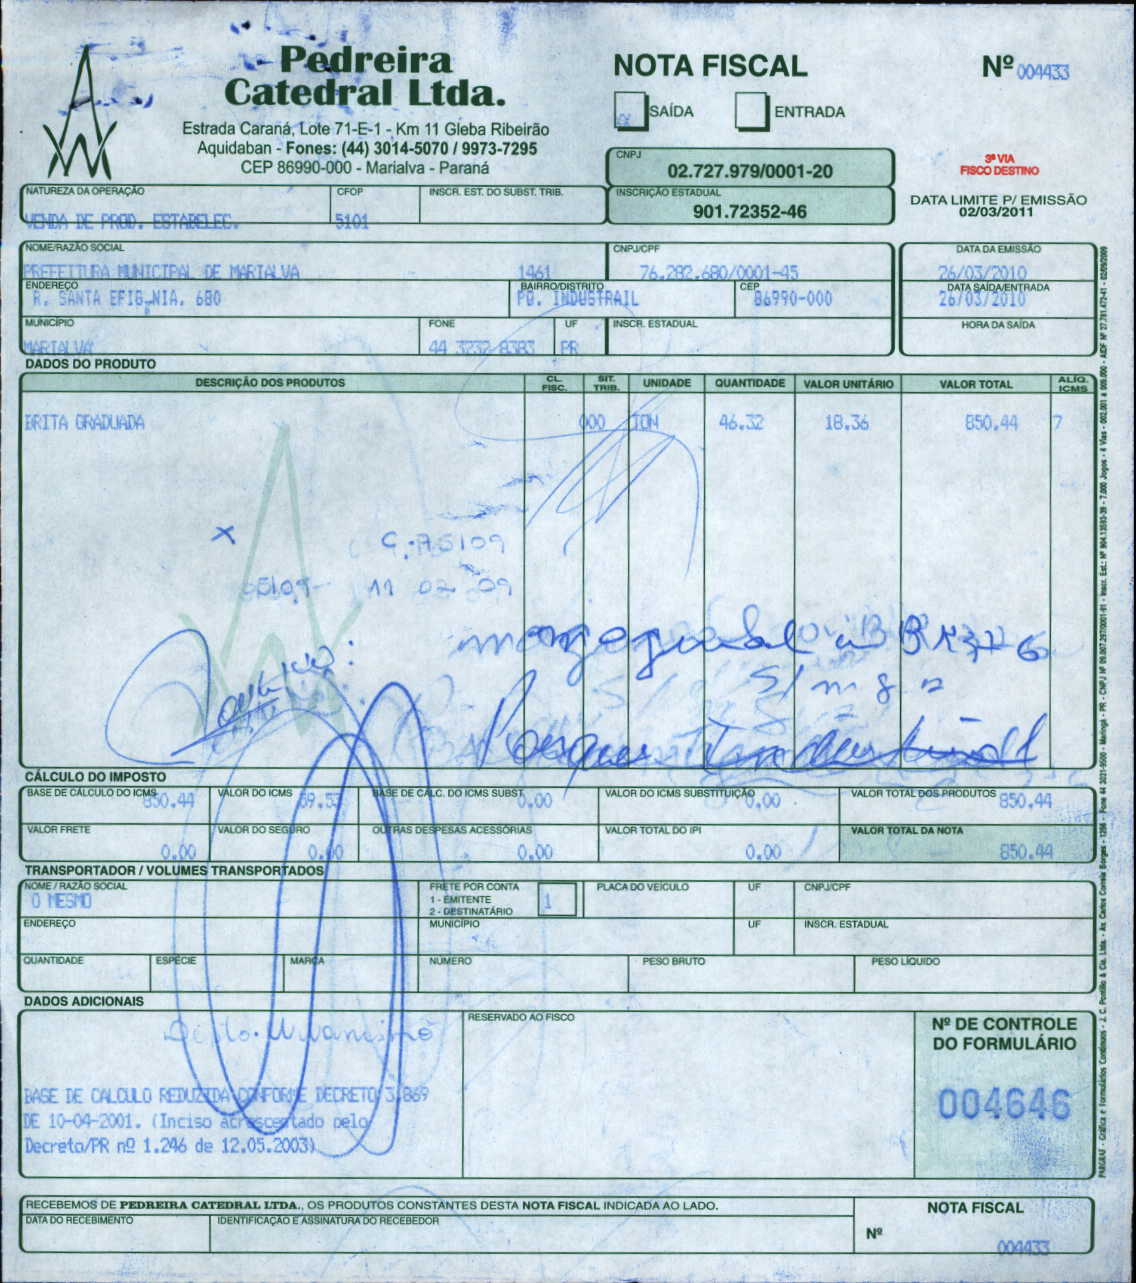 Pedreira
Catedral Ltda.
Estrada Caraná, Lote 71-E-1 - Km 11 Gleba Ribeirão
Aquidaban - Fones: (44) 3014-5070 / 9973-7295
CEP 86990-000 - Marialva - Paraná
NOTA FISCAL
SAÍDA ENTRADA
Nº 004433
CNPJ
02.727.979/0001-20
INSCRIÇÃO ESTADUAL
901.72352-46
3ª VIA
FISCO DESTINO
DATA LIMITE P/ EMISSÃO
02/03/2011
NATUREZA DA OPERAÇÃO CFOP INSCR. EST. DO SUBST. TRIB.
VENDA DE PROD. ESTABELEC. 5101
NOME/RAZÃO SOCIAL CNPJ/CPF DATA DA EMISSÃO
PREFEITURA MUNICIPAL DE MARIALVA 1461 76.282.680/0001-45 26/03/2010
ENDEREÇO BAIRRO/DISTRITO CEP DATA SAÍDA/ENTRADA
R. SANTA EFIG NIA, 680 PQ. INDUSTRAIL 86990-000 26/03/2010
MUNICÍPIO FONE UF INSCR. ESTADUAL HORA DA SAÍDA
MARIALVA 44 3232-8383 PR
DADOS DO PRODUTO
DESCRIÇÃO DOS PRODUTOS CL. FISC. SIT. TRIB. UNIDADE QUANTIDADE VALOR UNITÁRIO VALOR TOTAL ALÍQ. ICMS
BRITA GRADUADA 000 TON 46.32 18.36 850.44 7
X
11 02 09
CÁLCULO DO IMPOSTO
BASE DE CÁLCULO DO ICMS VALOR DO ICMS BASE DE CÁLC. DO ICMS SUBST. VALOR DO ICMS SUBSTITUIÇÃO VALOR TOTAL DOS PRODUTOS
850.44 59.53 0.00 0.00 850.44
VALOR FRETE VALOR DO SEGURO OUTRAS DESPESAS ACESSÓRIAS VALOR TOTAL DO IPI VALOR TOTAL DA NOTA
0.00 0.00 0.00 0.00 850.44
TRANSPORTADOR / VOLUMES TRANSPORTADOS
NOME / RAZÃO SOCIAL FRETE POR CONTA PLACA DO VEÍCULO UF CNPJ/CPF
O MESMO 1 - EMITENTE 1
2 - DESTINATÁRIO
ENDEREÇO MUNICÍPIO UF INSCR. ESTADUAL
QUANTIDADE ESPÉCIE MARCA NÚMERO PESO BRUTO PESO LÍQUIDO
DADOS ADICIONAIS
RESERVADO AO FISCO
BASE DE CALCULO REDUZIDA CONFORME DECRETO 3.869
DE 10-04-2001. (Inciso acrescentado pelo
Decreto/PR nº 1.246 de 12.05.2003)
Nº DE CONTROLE
DO FORMULÁRIO
004646
RECEBEMOS DE PEDREIRA CATEDRAL LTDA., OS PRODUTOS CONSTANTES DESTA NOTA FISCAL INDICADA AO LADO.
DATA DO RECEBIMENTO IDENTIFICAÇÃO E ASSINATURA DO RECEBEDOR
NOTA FISCAL
Nº 004433